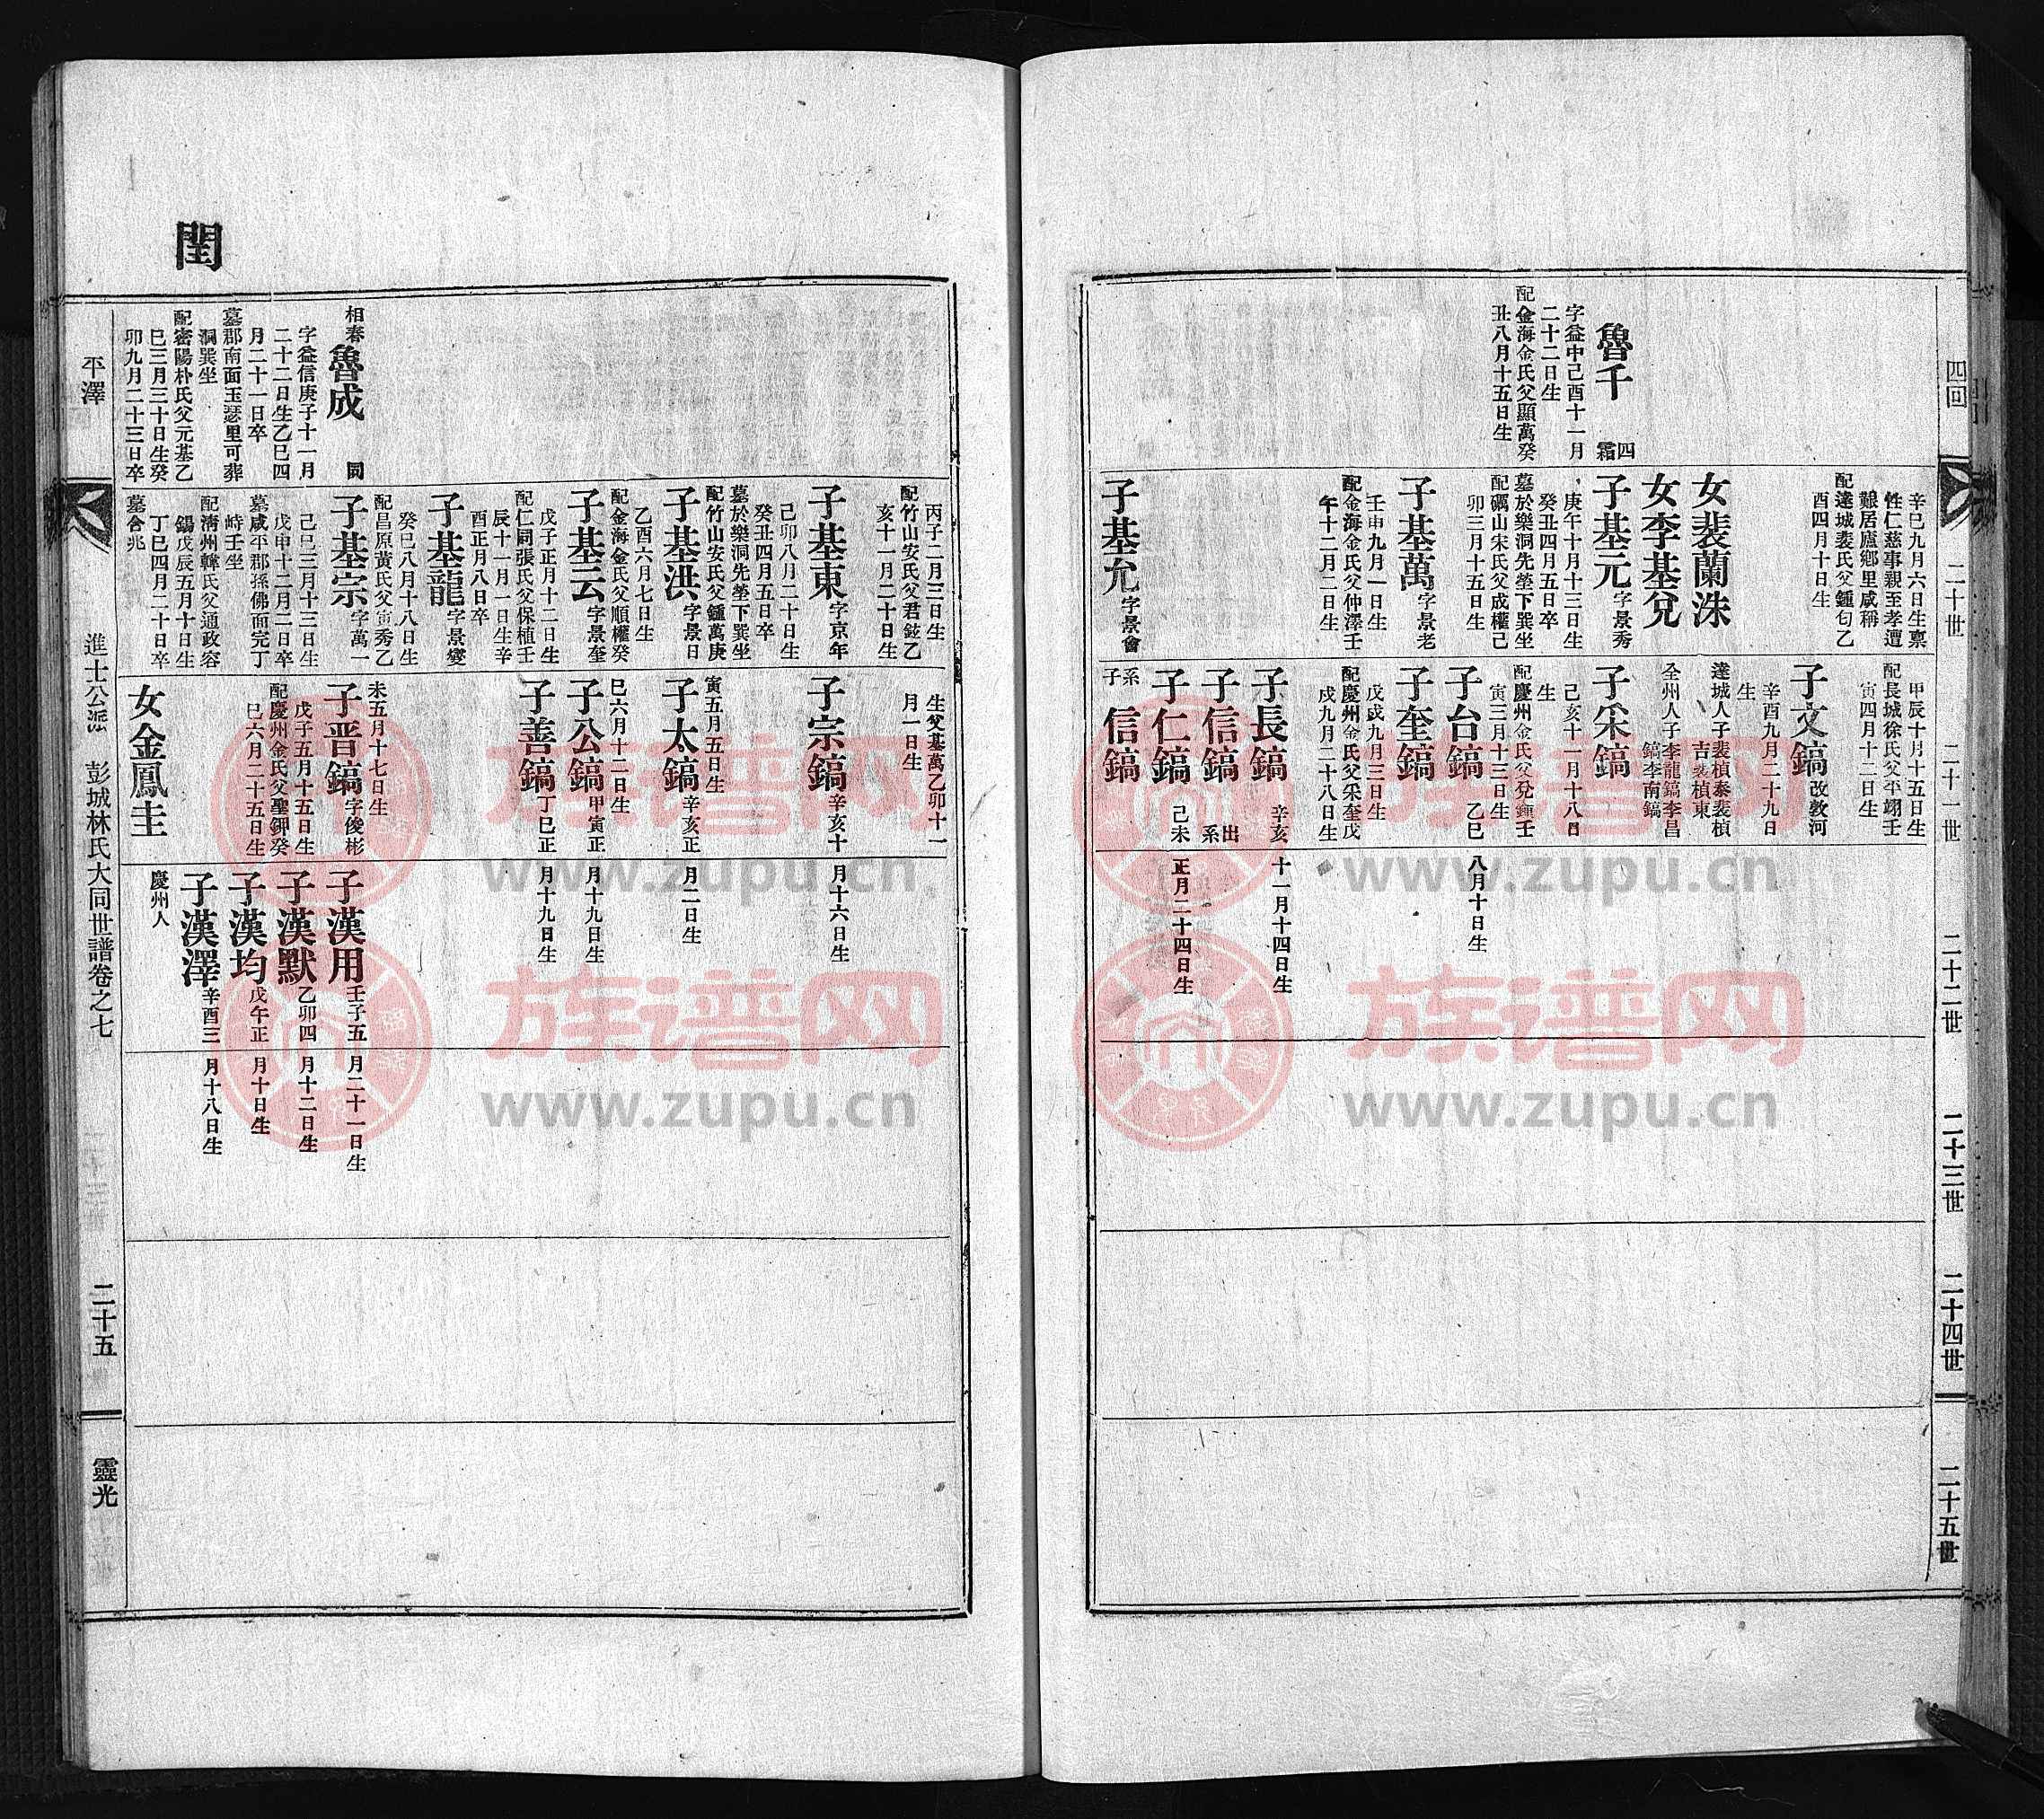 四回
二十世
二十一世
二十二世
二十三世
二十四世
二十五世
魯千
四
霜
字益中己酉十一月
二十二日生
配金海金氏父顯萬癸
丑八月十五日生
辛巳九月六日生稟
性仁慈事親至孝遭
艱居廬鄉里咸稱
配達城裵氏父鍾匂乙
酉四月十日生
女裴蘭洙
女李基兌
子基元字景秀
庚午十月十三日生
癸丑四月五日卒
墓於樂洞先塋下巽坐
配礪山宋氏父成權己
卯三月十五日生
子基萬字景老
壬申九月一日生
配金海金氏父仲澤壬
午十二月二日生
子基允字景會
甲辰十月十五日生
配長城徐氏父平翊壬
寅四月十二日生
子文鎬改敦河
辛酉九月二十九日
生
達城人子裴楨泰裴楨
吉裴楨東
全州人子李龍鎬李昌
鎬李南鎬
子采鎬
己亥十一月十八日
生
配慶州金氏父兌鍾壬
寅三月十三日生
子台鎬乙巳
八月十日生
子奎鎬
戊戌九月三日生
配慶州金氏父采奎戊
戌九月二十八日生
子長鎬辛亥
十一月十四日生
子信鎬出
系
子仁鎬己未
正月二十四日生
系
子
信鎬
丙子二月三日生
配竹山安氏父君鎰乙
亥十一月二十日生
子基東字京年
己卯八月二十日生
癸丑四月五日卒
墓於樂洞先塋下巽坐
配竹山安氏父鍾萬庚
寅五月五日生
子基洪字景日
乙酉六月七日生
配金海金氏父順權癸
巳六月十二日生
子基云字景奎
戊子正月十二日生
配仁同張氏父保植壬
辰十一月一日生辛
酉正月八日卒
子基龍字景燮
癸巳八月十八日生
配昌原黃氏父寅秀乙
未五月十七日生
生父基萬乙卯十一
月一日生
子宗鎬辛亥十
月十六日生
子太鎬辛亥正
月二日生
子公鎬甲寅正
月十九日生
子善鎬丁巳正
月十九日生
閏
相春
魯成
同
字益信庚子十一月
二十二日生乙巳四
月二十一日卒
墓郡南面玉瑟里可葬
洞巽坐
配密陽朴氏父元基乙
巳三月三十日生癸
卯九月二十三日卒
墓合兆
子基宗字萬一
己巳三月十三日生
戊申十二月二日卒
墓咸平郡孫佛面完丁
峙壬坐
配淸州韓氏父通政容
錫戊辰五月十日生
丁巳四月二十日卒
子晋鎬字俊彬
戊子五月十五日生
配慶州金氏父聖鉀癸
巳六月二十五日生
女金鳳圭
慶州人
子漢用壬子五
月二十一日生
子漢默乙卯四
月十二日生
子漢均戊午正
月十日生
子漢澤辛酉三
月十八日生
平澤
進士公派
彭城林氏大同世譜卷之七
二十五
靈光
族谱网
www.zupu.cn
族谱网
www.zupu.cn
族谱网
www.zupu.cn
族谱网
www.zupu.cn